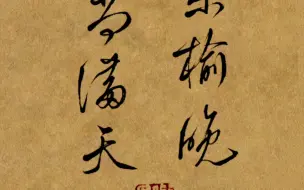 桑榆晚
尚满天